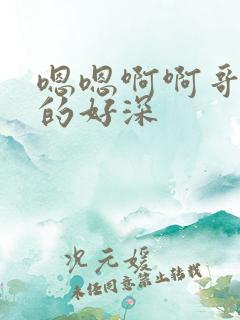 嗯嗯啊啊哥
的好深
况元媛
未经同意禁止转载